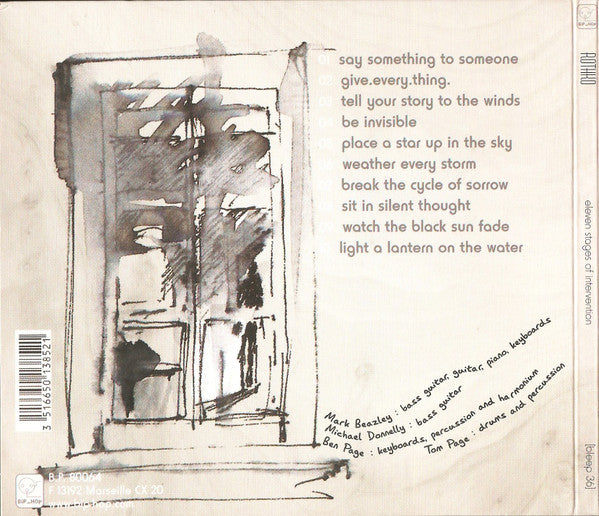 01 say something to someone
02 give.every.thing.
03 tell your story to the winds
04 be invisible
05 place a star up in the sky
06 weather every storm
07 break the cycle of sorrow
08 sit in silent thought
watch the black sun fade
light a lantern on the water
Mark Beazley : bass guitar, guitar, piano, keyboards
Michael Donnelly : bass guitar
Ben Page : keyboards, percussion and harmonium
Tom Page : drums and percussion
3 516650 138521
BiP_HOp
B.P. 80064
F 13192 Marseille CX 20
www.bip-hop.com
BiP_HOp
ROTHKO
eleven stages of intervention
[bleep 36]